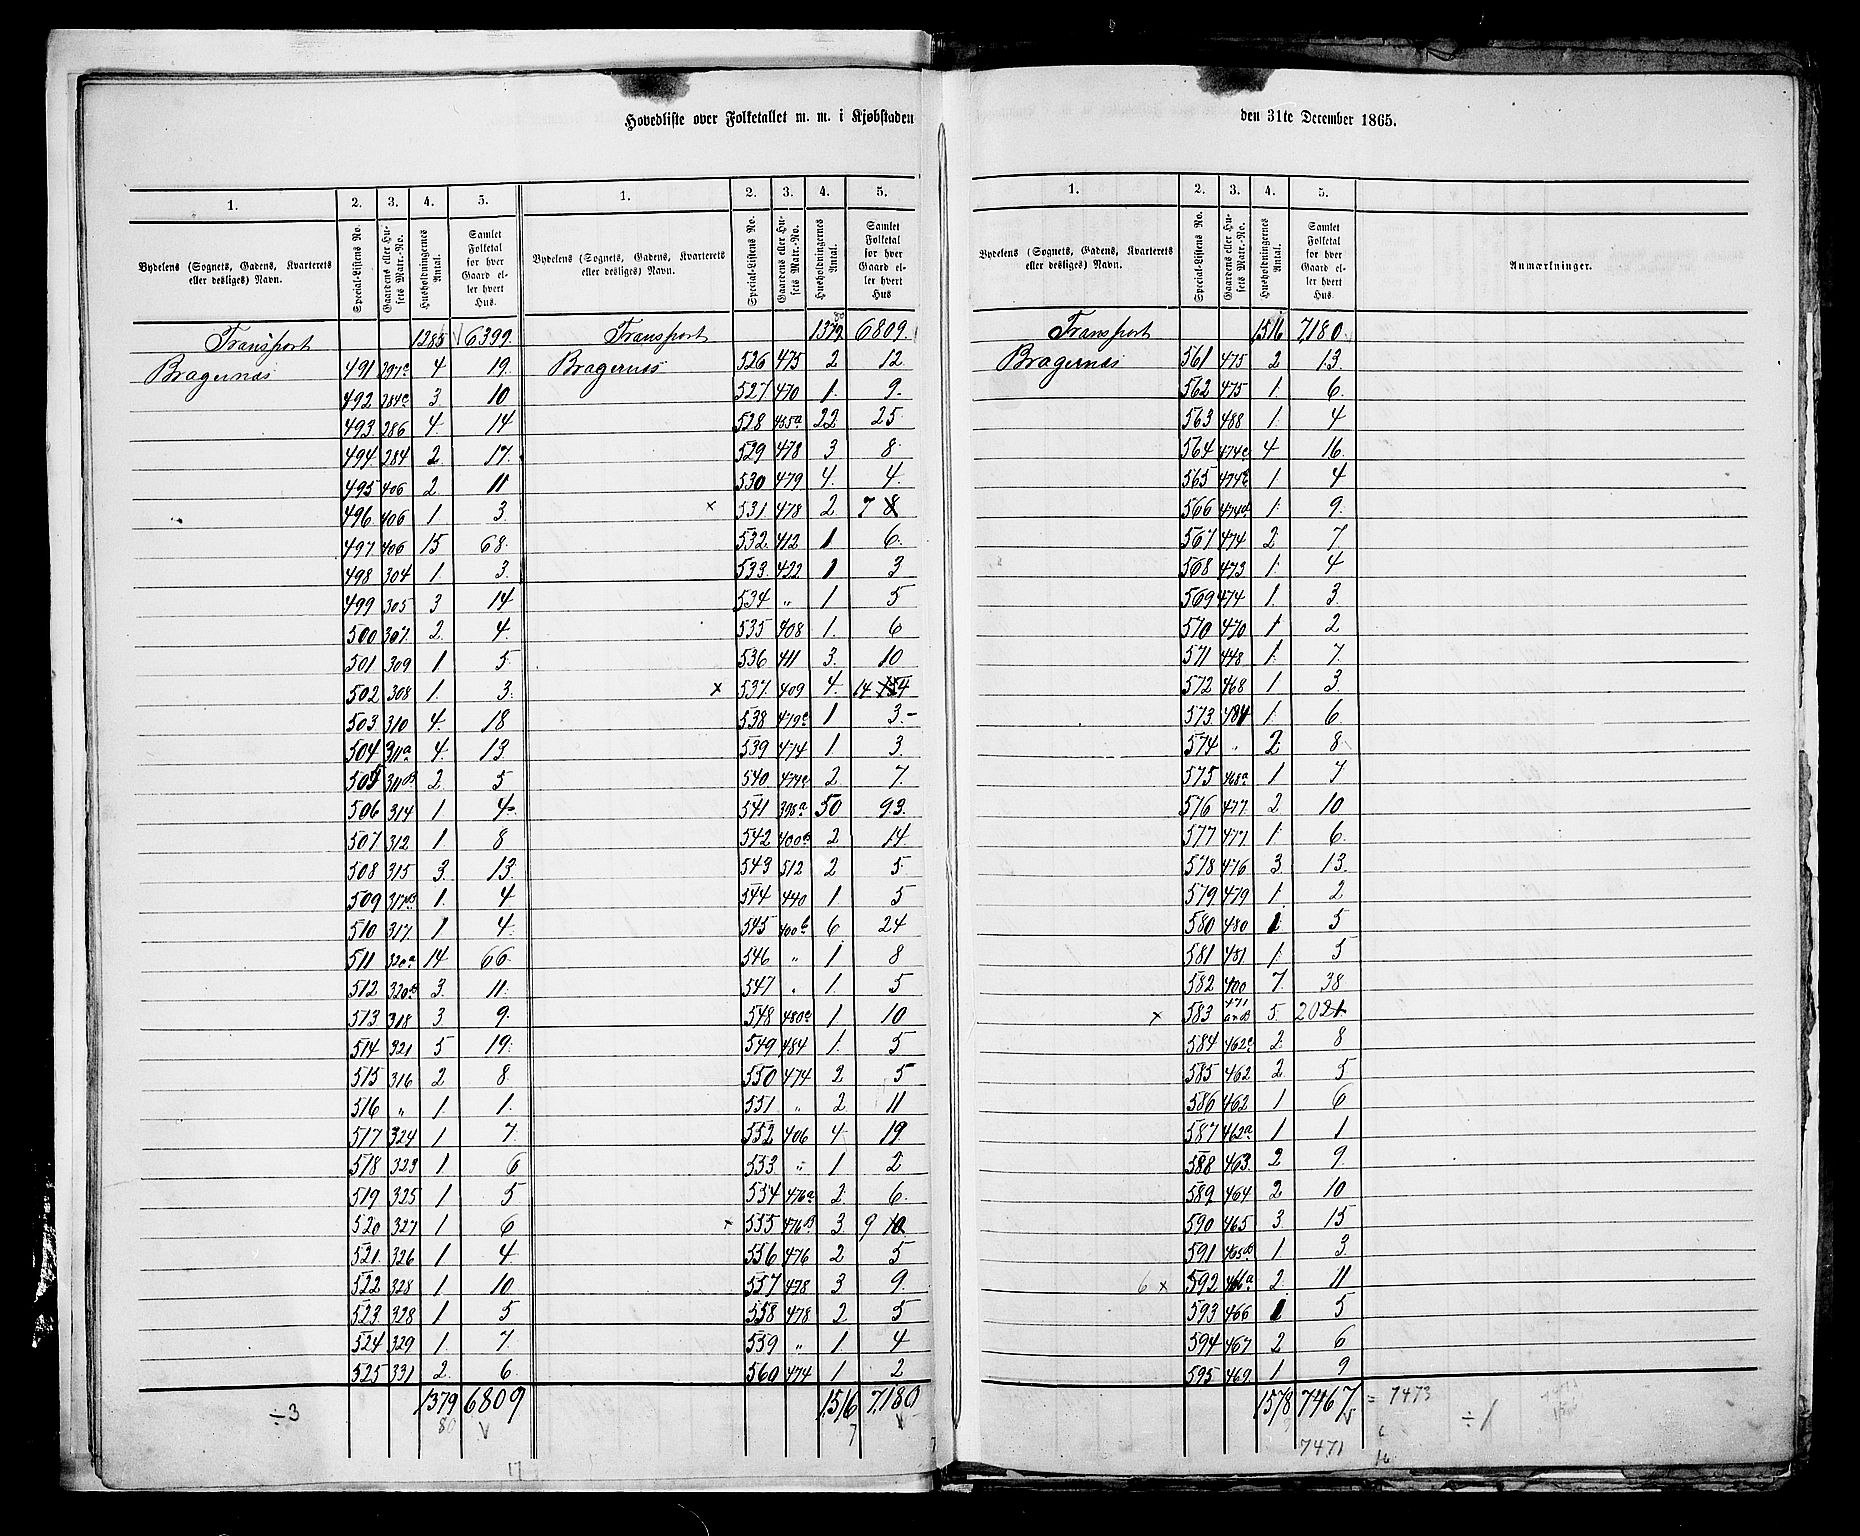 Hovedliste over Folketallet m. m. i Kjøbstaden den 31te December 1865.
1. 2. 3. 4. 5. 1. 2. 3. 4. 5.
Bydelens (Sognets, Gadens, Kvarterets eller desliges) Navn. Special-Listens No. Gaardens eller Husets Matr.-No. Husholdningernes Antal. Samlet Folketal for hver Gaard eller hvert Hus
Transport 1285 6399
Bragernæs 491 297c 4 19
492 284c 3 10
493 286 4 14
494 284 2 17
495 406 2 11
496 406 1 3
497 406 15 68
498 304 1 3
499 305 3 14
500 307 2 4
501 309 1 5
502 308 1 3
503 310 4 18
504 311a 4 13
505 311B 2 5
506 314 1 4
507 312 1 8
508 315 3 13
509 317B 1 4
510 317 1 4
511 320a 14 66
512 320B 3 11
513 318 3 9
514 321 5 19
515 316 2 8
516 " 1 1
517 324 1 7
518 323 1 6
519 325 1 5
520 327 1 6
521 326 1 4
522 328 1 10
523 328 1 5
524 329 1 7
525 331 2 6
÷3 1379 6809
80 V
17
Bydelens (Sognets, Gadens, Kvarterets eller desliges) Navn. Special-Listens No. Gaardens eller Husets Matr.-No. Husholdningernes Antal. Samlet Folketal for hver Gaard eller hvert Hus
Transport 1379 6809
Bragernæs 526 475 2 12
527 470 1 9
528 455a 22 25
529 478 3 8
530 479 4 4
x 531 478 2 7 8
532 412 1 6
533 422 1 3
534 " 1 5
535 408 1 6
536 411 3 10
x 537 409 4 14
538 479c 1 3
539 474 1 3
540 474c 2 7
541 398a 50 93
542 400B 2 14
543 512 2 5
544 440 1 5
545 400b 6 24
546 " 1 8
547 " 1 5
548 480c 1 10
549 484 1 5
550 474 2 5
551 " 2 11
552 406 4 19
553 " 1 2
554 476a 2 6
x 555 476B 3 9 10
556 476 2 5
557 478 3 9
558 478 2 5
559 " 1 4
560 474 1 2
1516 7180
7
1. 2. 3. 4. 5.
Bydelens (Sognets, Gadens, Kvarterets eller desliges) Navn. Special-Listens No. Gaardens eller Husets Matr.-No. Husholdningernes Antal. Samlet Folketal for hver Gaard eller hvert Hus Anmærkninger.
Transport 1516 7180
Bragernæs 561 475 2 13
562 475 1 6
563 488 1 4
564 474c 4 16
565 474c 1 4
566 474d 1 9
567 474 2 7
568 473 1 4
569 474 1 3
570 470 1 2
571 448 1 7
572 468 1 3
573 484 1 6
574 " 2 8
575 468a 1 7
576 477 2 10
577 477 1 6
578 476 3 13
579 479 1 2
580 480 1 5
581 481 1 5
582 400 7 38
x 583 471 a&B 5 20 21
584 462c 2 8
585 462 2 5
586 462 1 6
587 462a 1 1
588 463 2 9
589 464 2 10
590 465 3 15
591 465B 1 3
6 x 592 466a 2 11
593 466 1 5
594 467 2 6
595 469 1 9
1578 7467 = 7473 ÷1
7471 6
16